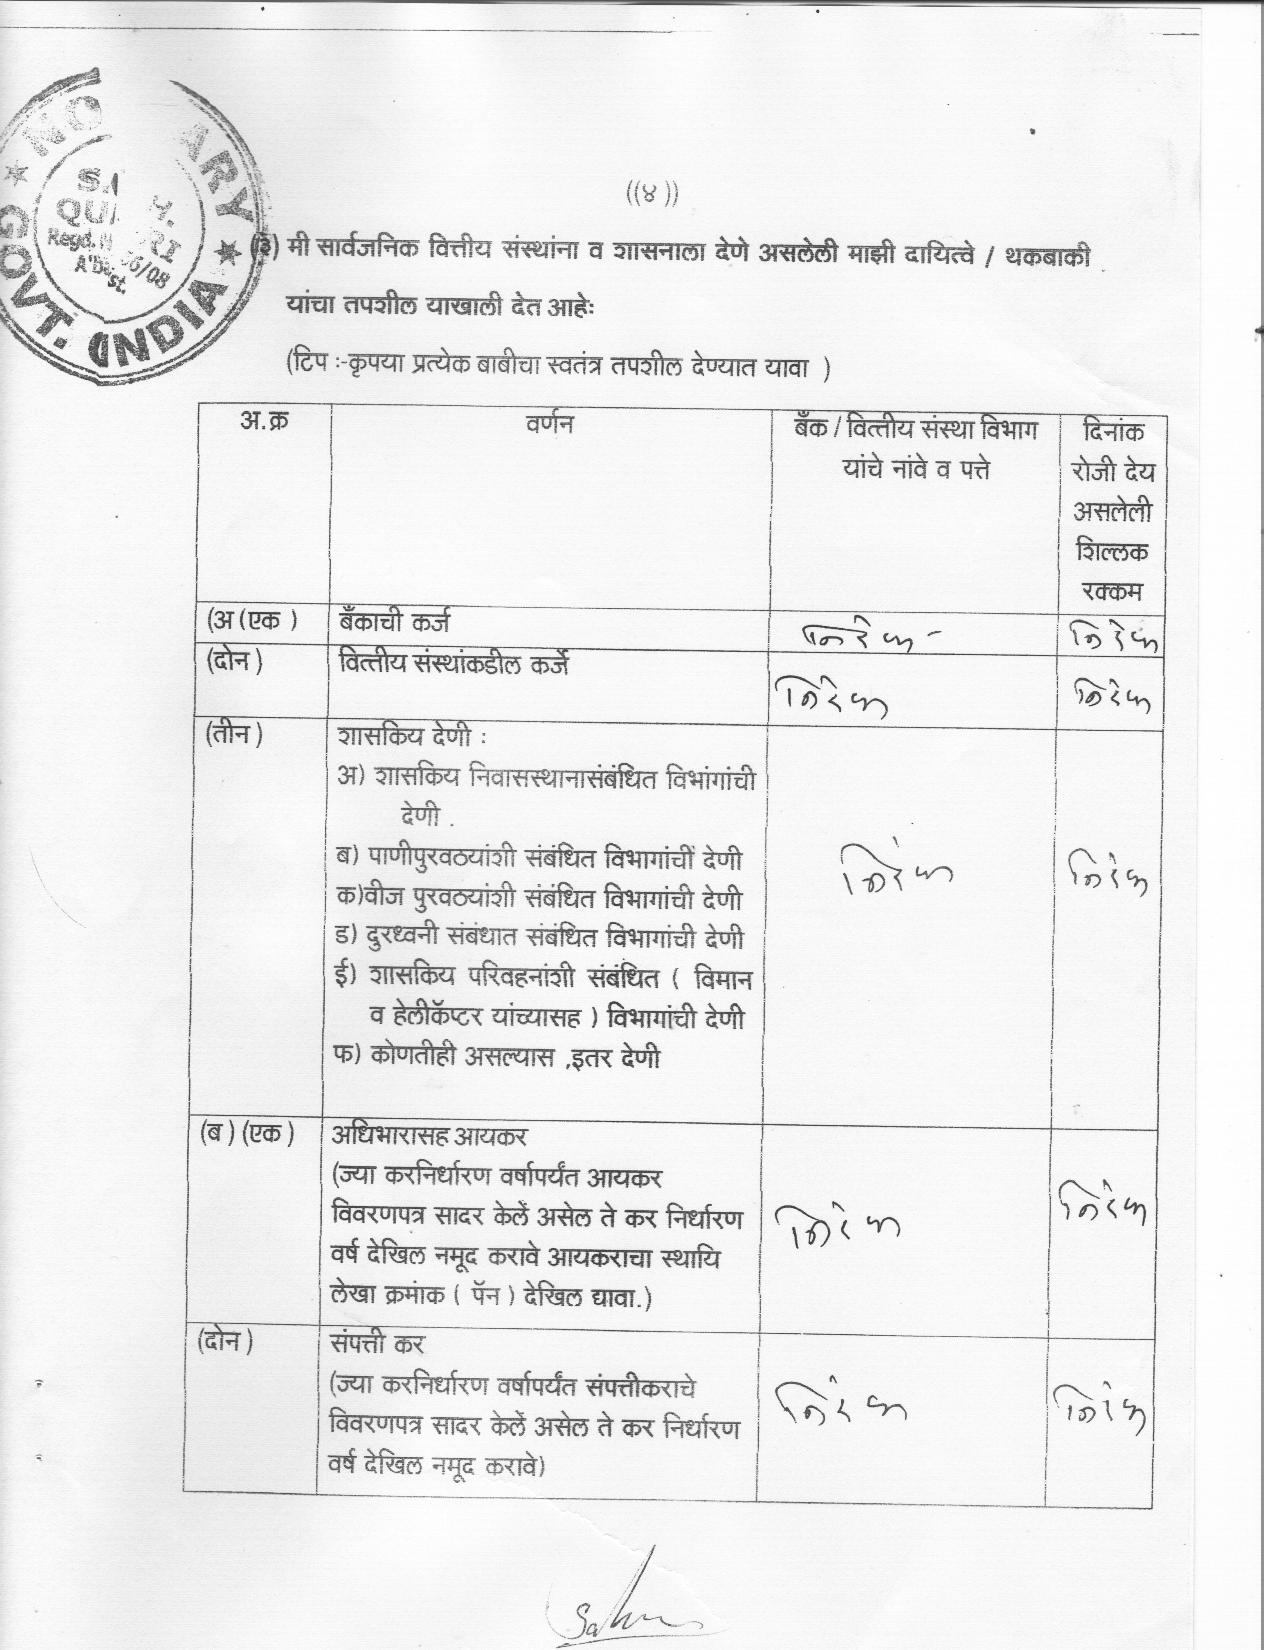 NO ARY
GOVT. INDIA
QU
Regd.
06/08
A'B
st.
((४))
(३) मी सार्वजनिक वित्तीय संस्थांना व शासनाला देणे असलेली माझी दायित्वे / थकबाकी
यांचा तपशील याखाली देत आहेः
(टिप :-कृपया प्रत्येक बाबीचा स्वतंत्र तपशील देण्यात यावा )
अ.क्र वर्णन बँक / वित्तीय संस्था विभाग दिनांक
यांचे नांवे व पत्ते रोजी देय
असलेली
शिल्लक
रक्कम
(अ (एक ) बँकाची कर्ज निरंक - निरंक
(दोन ) वित्तीय संस्थांकडील कर्जे निरंक निरंक
(तीन ) शासकिय देणी :
अ) शासकिय निवासस्थानासंबंधित विभांगांची
देणी .
ब) पाणीपुरवठयांशी संबंधित विभागांचीं देणी निरंक निरंक
क)वीज पुरवठयांशी संबंधित विभागांची देणी
ड) दुरध्वनी संबंधात संबंधित विभागांची देणी
ई) शासकिय परिवहनांशी संबंधित ( विमान
व हेलीकॅप्टर यांच्यासह ) विभागांची देणी
फ) कोणतीही असल्यास ,इतर देणी
(ब ) (एक ) अधिभारासह आयकर
(ज्या करनिर्धारण वर्षापर्यंत आयकर
विवरणपत्र सादर केलें असेल ते कर निर्धारण निरंक निरंक
वर्ष देखिल नमूद करावे आयकराचा स्थायि
लेखा क्रमांक ( पॅन ) देखिल द्यावा.)
(दोन ) संपत्ती कर
(ज्या करनिर्धारण वर्षापर्यंत संपत्तीकराचे
विवरणपत्र सादर केलें असेल ते कर निर्धारण निरंक निरंक
वर्ष देखिल नमूद करावे)